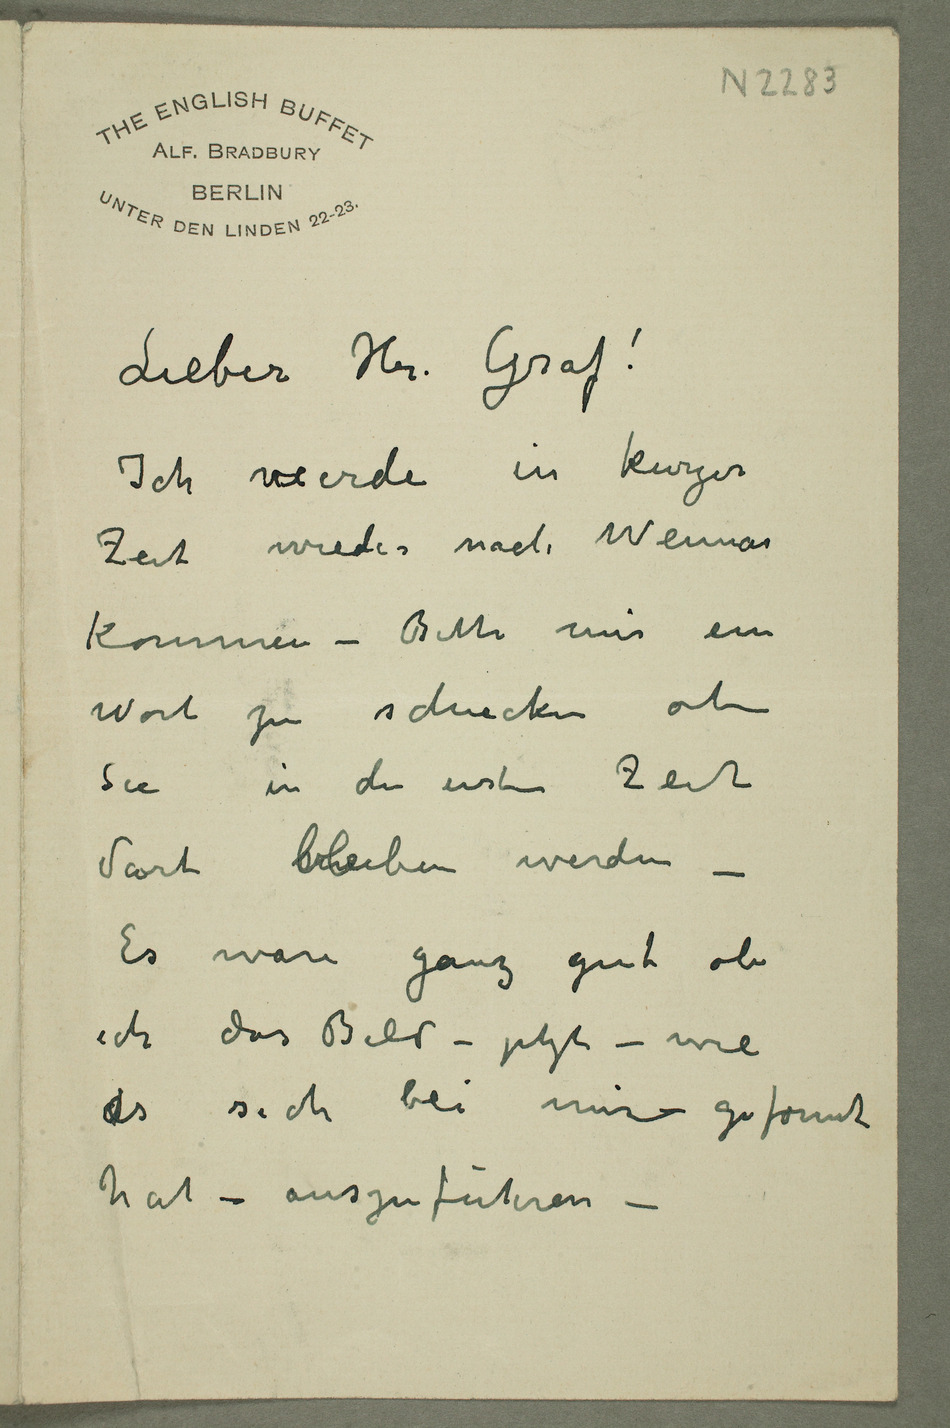 N 2283
THE ENGLISH BUFFET
ALF. BRADBURY
BERLIN
UNTER DEN LINDEN 22-23.
Lieber Hr. Graf!
Ich werde in kurzer
Zeit wieder nach Weimar
kommen – Bitte mir ein
Wort zu schicken ob
Sie in der ersten Zeit
dort bleiben werden –
Es ware ganz gut ob
ich das Bild – jetzt – wie
es sich bei mir – geformt
hat – auszuführen –